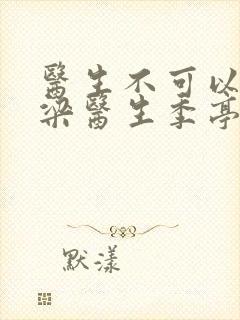 醫生不可以
梁醫生季亭
默漾